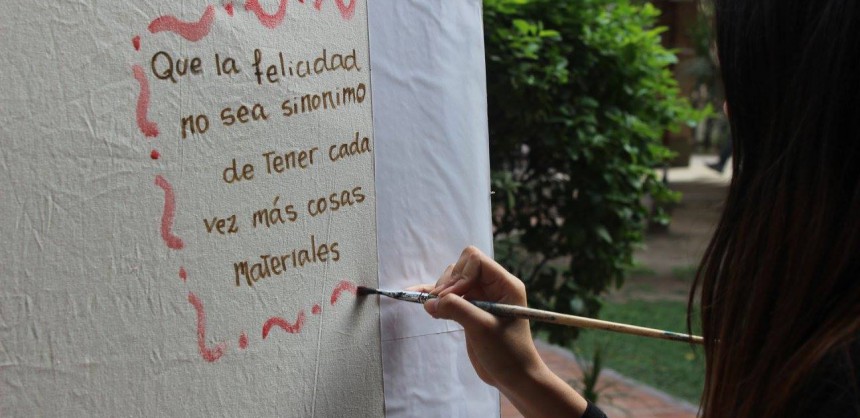 Que la felicidad
no sea sinonimo
de Tener cada
vez más cosas
Materiales